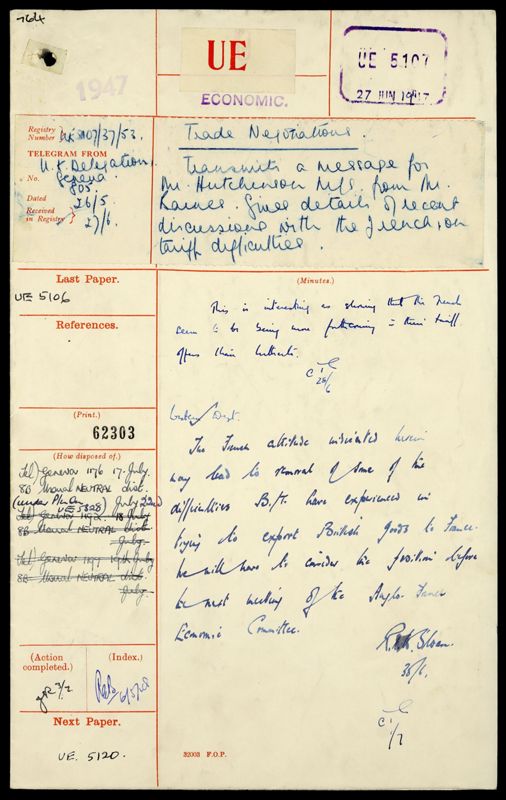 764
1947
UE
ECONOMIC.
UE 5107
27 JUN 1947
Registry Number UE 5107/37/53.
TELEGRAM FROM
U.K. Delegation,
Geneva
No. 805.
Dated 26/5.
Received in Registry 27/6.
Trade Negotiations.
Transmits a message for
Mr. Hutchinson M/S. from Mr.
Gives details of recent
discussions with the French, on
tariff difficulties.
Last Paper.
UE 5106
References.
(Print.)
62303
(How disposed of.)
Tel) Geneva 1176 17. July.
(under Plan
UE 5828) July 22nd
July
(Action completed.)
3/2
(Index.)
6/5/48
Next Paper.
UE. 5120.
(Minutes.)
This is interesting as showing that the French
seem to be being more forthcoming in their tariff
offers than hitherto.
28/6
Western Dept.
The French attitude indicated herein
may lead to removal of some of the
difficulties B/T. have experienced in
trying to export British goods to France.
We will have to consider the position before
the next meeting of the Anglo-French
Economic Committee.
R.K. Sloan.
30/6.
1/7
32003 F.O.P.